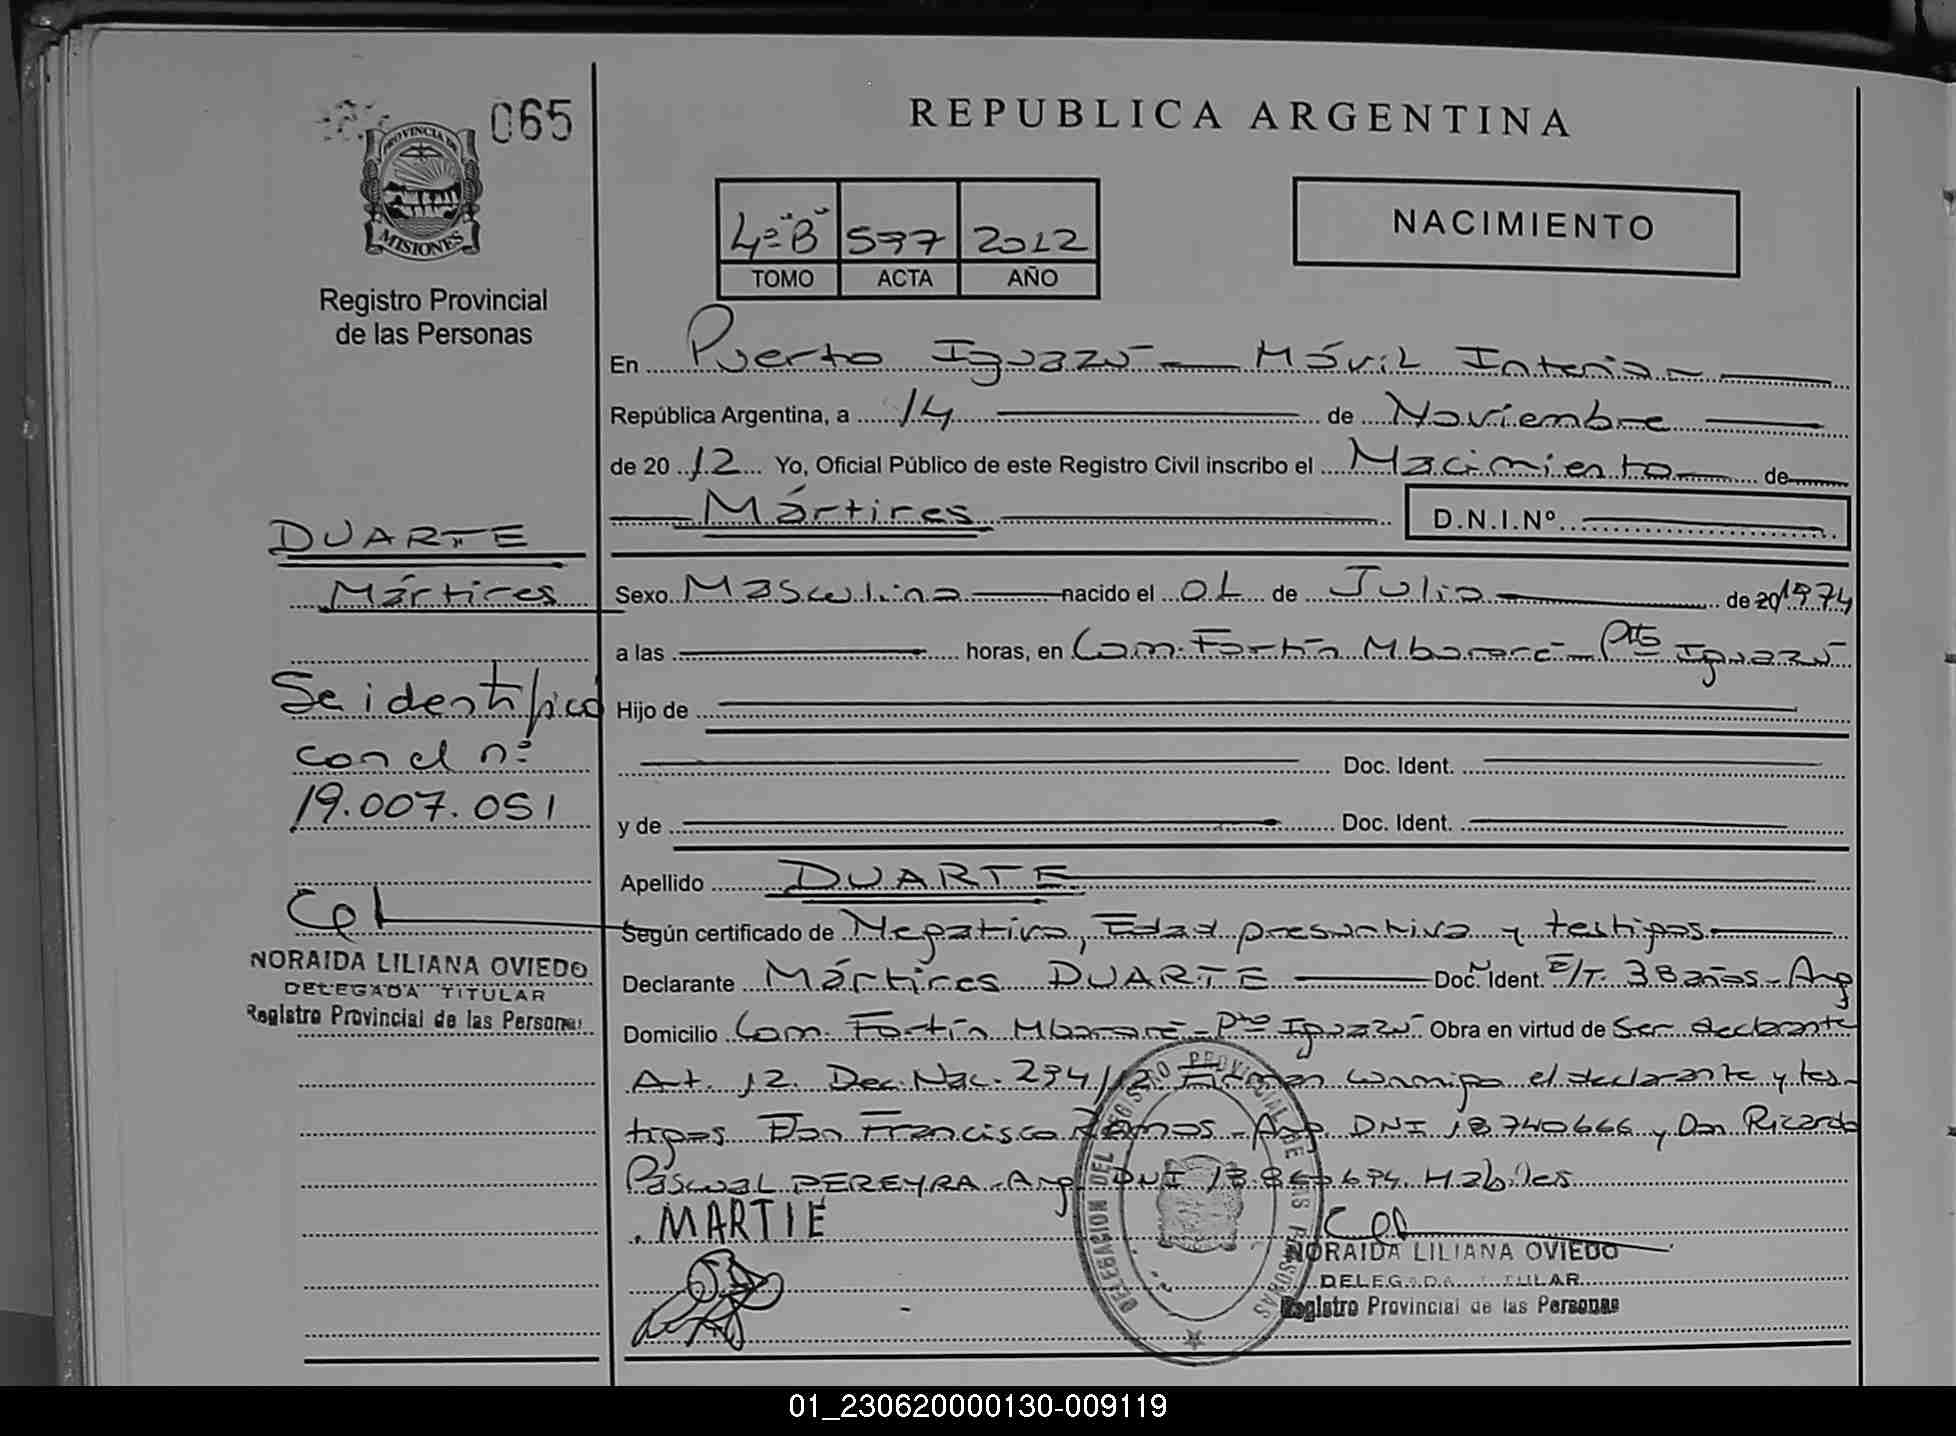 065
PROVINCIA DE
MISIONES
Registro Provincial
de las Personas
REPUBLICA ARGENTINA
4º "B" 577 2012
TOMO ACTA AÑO
NACIMIENTO
En Puerto Iguazú - Móvil Interior
República Argentina, a 14 de Noviembre
de 20 12 Yo, Oficial Público de este Registro Civil inscribo el Nacimiento de
Mártires D.N.I.Nº
DUARTE
Mártires
Sexo Masculino nacido el 01 de Julio de 20 1974
a las horas, en Com. Fortín Mbororé - Pto Iguazú
Se identificó
con el nº
19.007.051
Hijo de
Doc. Ident.
y de Doc. Ident.
Apellido DUARTE
Según certificado de Negativo, Edad presuntiva y testigos
Declarante Mártires DUARTE Doc. Ident. E/T. 38 años - Arg
Domicilio Com. Fortín Mbororé - Pto Iguazú Obra en virtud de Ser declarante
Art. 12 Dec. Nac. 294/12 Firman conmigo el declarante y tes-
tigos Don Francisco RAMOS - Arg DNI 18.740.666 y Don Ricardo
Pascual PEREYRA - Arg. DNI Hábiles
MARTIE
NORAIDA LILIANA OVIEDO
DELEGADA TITULAR
Registro Provincial de las Personas
NORAIDA LILIANA OVIEDO
DELEGADA TITULAR
Registro Provincial de las Personas
DELEGACION DEL REGISTRO PROVINCIAL DE LAS PERSONAS
01_230620000130-009119